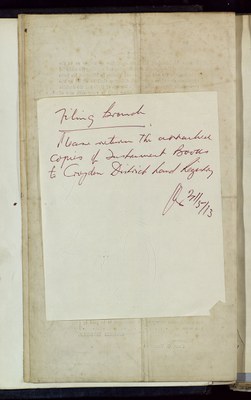 Filing Branch
Please return the attached
copies of Instrument Books
to Croydon District Land Registry
21/5/13